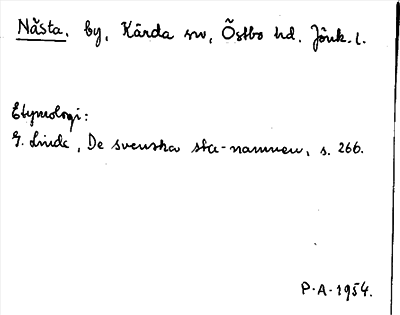 Nåsta, by, Kärda sn, Östbo hd. Jönk. l.
Etymologi:
G. Linde, De svenska sta-namnen, s. 266.
P.A. 1954.